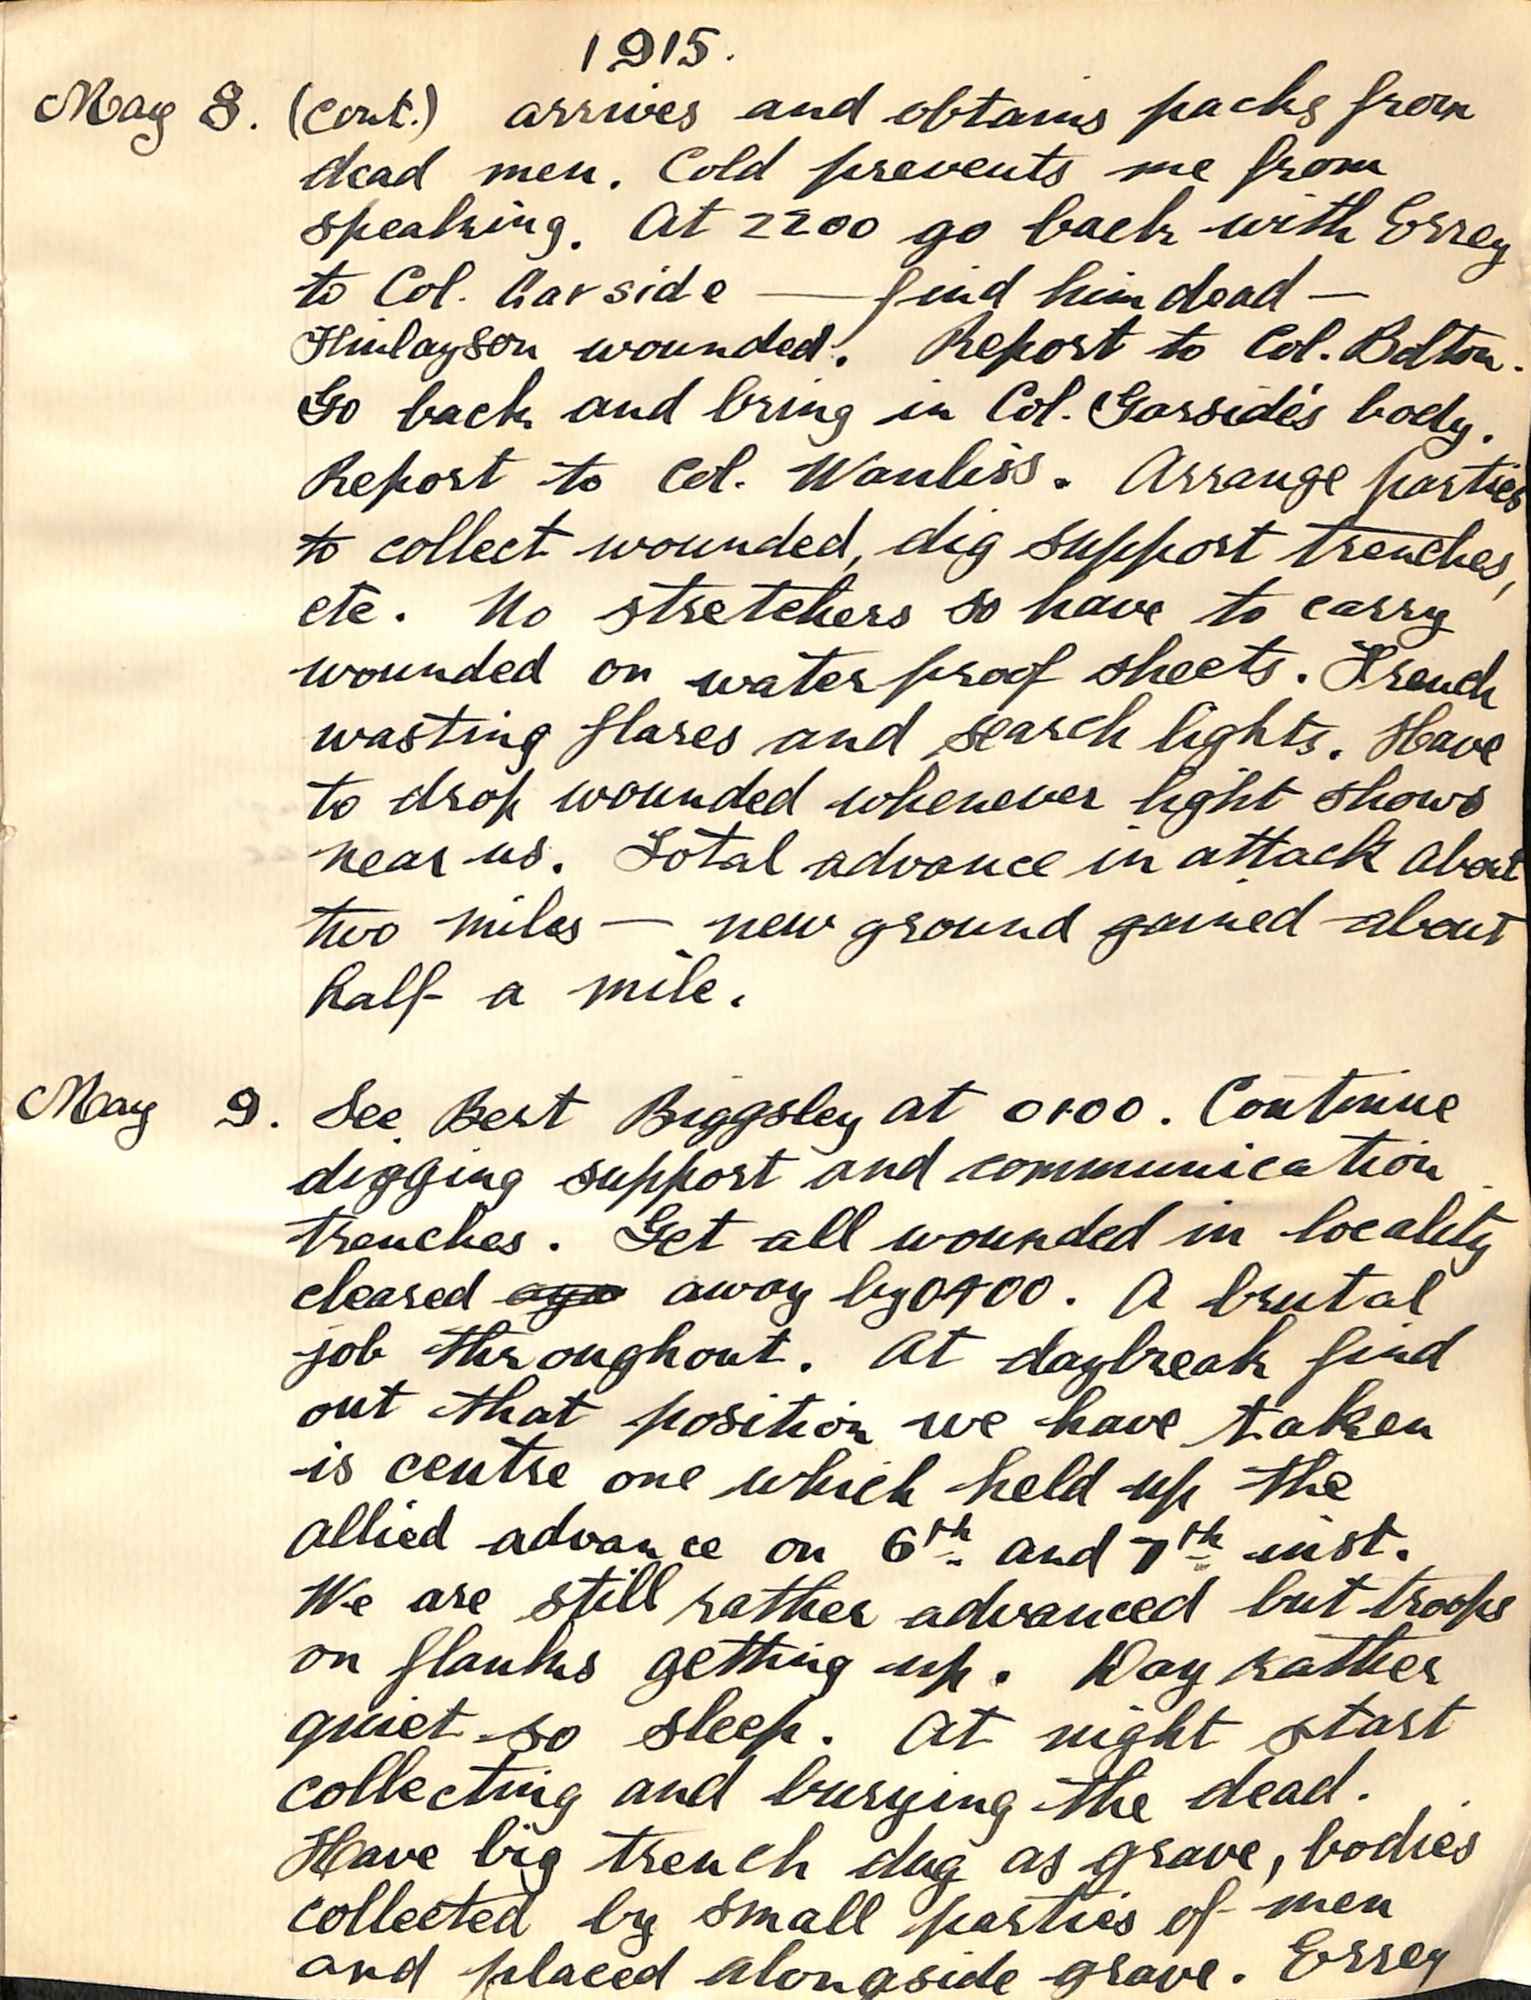 1915.
May 8. (cont.) arrives and obtains packs from
dead men. Cold prevents me from
speaking. At 2200 go back with Errey
to Col. Garside — find him dead —
Finlayson wounded. Report to Col. Bolton.
Go back and bring in Col. Garside's body.
Report to Col. Wanliss. Arrange parties
to collect wounded, dig support trenches,
etc. No stretchers so have to carry
wounded on water proof sheets. French
wasting flares and search lights. Have
to drop wounded whenever light shows
near us. Total advance in attack about
two miles — new ground gained about
half a mile.
May 9. See Bert Biggsley at 0100. Continue
digging support and communication
trenches. Get all wounded in locality
cleared away by 0400. A brutal
job throughout. At daybreak find
out that position we have taken
is centre one which held up the
allied advance on 6th and 7th inst.
We are still rather advanced but troops
on flanks getting up. Day rather
quiet so sleep. At night start
collecting and burying the dead.
Have big trench dug as grave, bodies
collected by small parties of men
and placed alongside grave. Errey